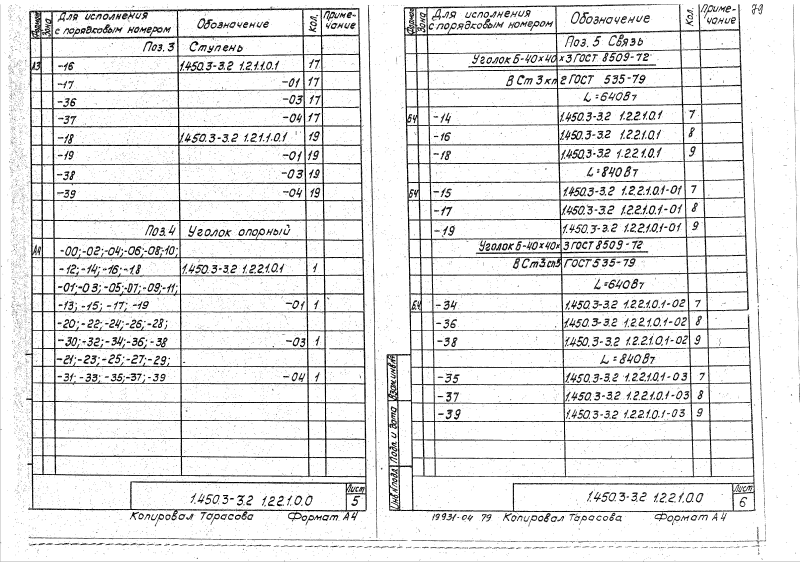 Для исполнения с порядковым номером Обозначение Кол. Примечание
Поз. 3 Ступень
А3 -16 1.450.3-3.2 1.2.1.1.0.1 17
-17 -01 17
-36 -03 17
-37 -04 17
-18 1.450.3-3.2 1.2.1.1.0.1 19
-19 -01 19
-38 -03 19
-39 -04 19
Поз. 4 Уголок опорный
А4 -00;-02;-04;-06;-08;-10;
-12;-14;-16;-18 1.450.3-3.2 1.2.2.1.0.1 1
-01;-03;-05;-07;-09;-11;
-13; -15; -17; -19 -01 1
-20;-22;-24;-26;-28;
-30;-32;-34;-36;-38 -03 1
-21;-23;-25;-27;-29;
-31;-33;-35;-37;-39 -04 1
1.450.3-3.2 1.2.2.1.0.0 Лист 5
Копировал Тарасова Формат А4
Формат Зона Для исполнения с порядковым номером Обозначение Кол. Примечание
Поз. 5 Связь
Уголок Б-40х40х3 ГОСТ 8509-72
ВСт3кп2 ГОСТ 535-79
L=640Вт
БЧ -14 1.450.3-3.2 1.2.2.1.0.1 7
-16 1.450.3-3.2 1.2.2.1.0.1 8
-18 1.450.3-3.2 1.2.2.1.0.1 9
L=840Вт
БЧ -15 1.450.3-3.2 1.2.2.1.0.1-01 7
-17 1.450.3-3.2 1.2.2.1.0.1-01 8
-19 1.450.3-3.2 1.2.2.1.0.1-01 9
Уголок Б-40х40х3 ГОСТ 8509-72
ГОСТ 535-79
L=640Вт
БЧ -34 1.450.3-3.2 1.2.2.1.0.1-02 7
-36 1.450.3-3.2 1.2.2.1.0.1-02 8
-38 1.450.3-3.2 1.2.2.1.0.1-02 9
L=840Вт
-35 1.450.3-3.2 1.2.2.1.0.1-03 7
-37 1.450.3-3.2 1.2.2.1.0.1-03 8
-39 1.450.3-3.2 1.2.2.1.0.1-03 9
Взам.инв.№
Подп. и дата
Инв.№подл.
1.450.3-3.2 1.2.2.1.0.0 Лист 6
19931-04 79 Копировал Тарасова Формат А4